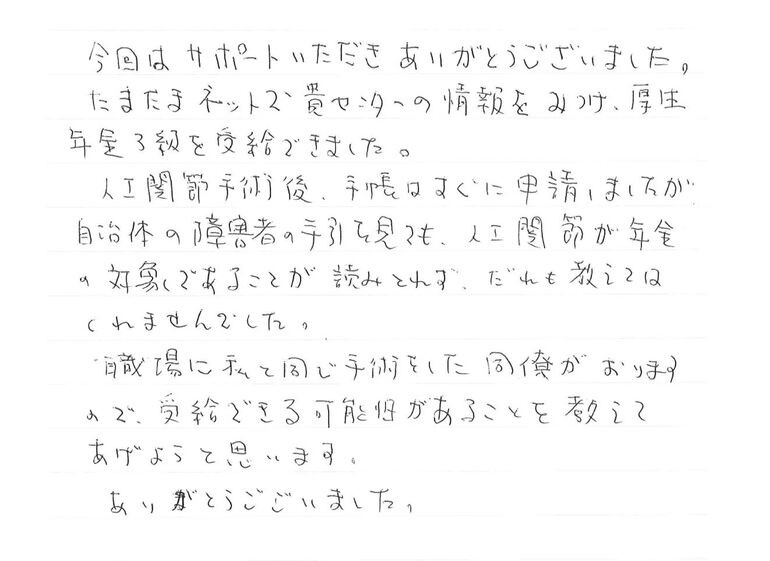 今回はサポートいただきありがとうございました。
たまたまネットで貴センターの情報をみつけ、厚生
年金3級を受給できました。
人工関節手術後、手帳はすぐに申請しましたが
自治体の障害者の手引を見ても、人工関節が年金
の対象であることが読みとれず、だれも教えては
くれませんでした。
職場に私と同じ手術をした同僚がおります
ので、受給できる可能性があることを教えて
あげようと思います。
ありがとうございました。